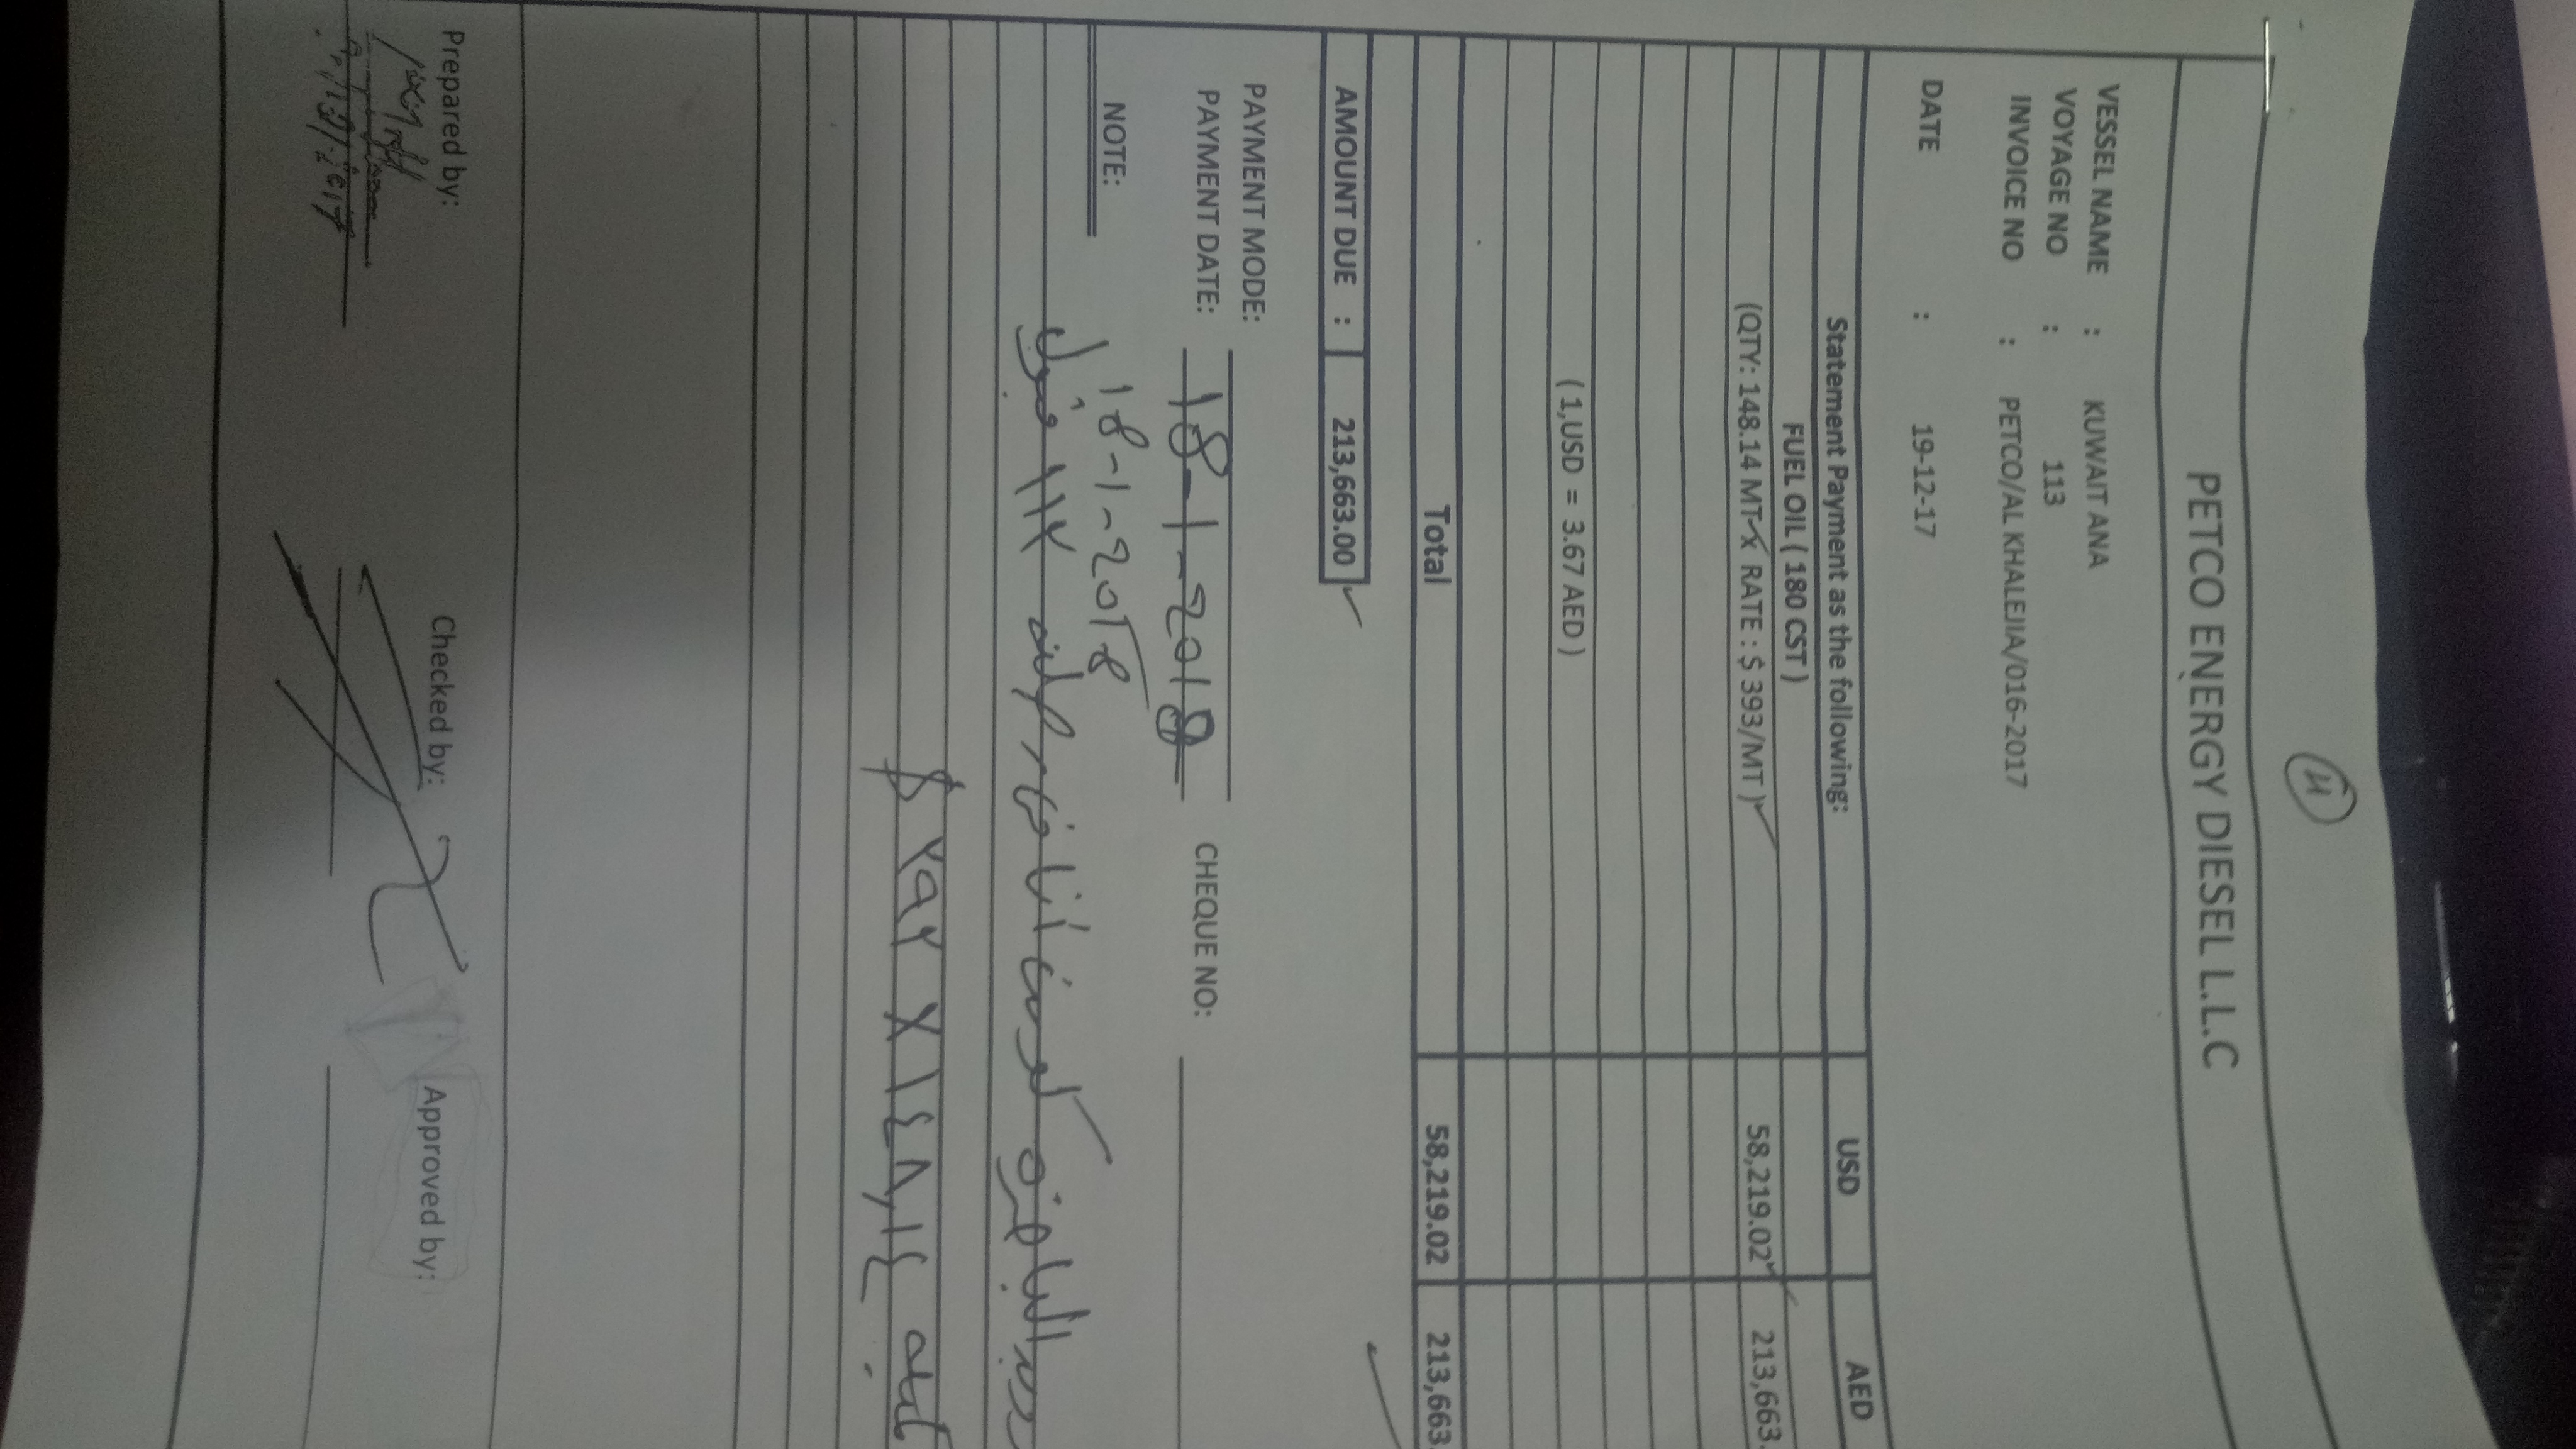 4
PETCO ENERGY DIESEL L.L.C
VESSEL NAME : KUWAIT ANA
VOYAGE NO : 113
INVOICE NO : PETCO/AL KHALEJIA/016-2017
DATE : 19-12-17
Statement Payment as the following: USD AED
FUEL OIL ( 180 CST )
(QTY: 148.14 MT x RATE : $ 393/MT ) 58,219.02 213,663.
( 1,USD = 3.67 AED )
Total 58,219.02 213,663
AMOUNT DUE : 213,663.00
PAYMENT MODE:
PAYMENT DATE: 18-1-2018 CHEQUE NO:
NOTE: 18-1-2018
١١٣
$ ٣٩٣ X ١٤٨,١٤
Prepared by: Checked by: Approved by: